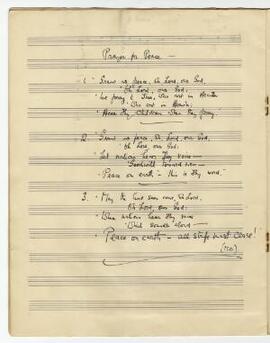 Prayer for Peace —
1. Grant us peace, Oh Lord, our God,
Oh Lord, our God.
We pray to Thee, Who art in Heaven
Who art in Heaven,
Hear Thy Children when they pray.
2. Grant us peace, Oh Lord, our God,
Oh Lord, our God.
Let nations hear Thy voice —
Goodwill toward men —
Peace on earth — this is Thy word.
3. May the time soon come, Oh Lord,
Oh Lord, our God.
When nations hear Thy voice
Which sounds aloud —
Peace on earth — all strife must cease!